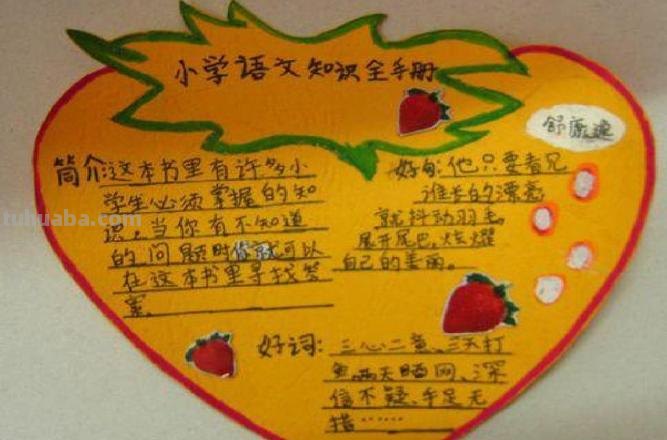 小学语文知识全手册
舒康速
简介:这本书里有许多小
学生必须掌握的知
识,当你有不知道
的问题时你就可以
在这本书里寻找答
案。
好句:他只要看见
谁长的漂亮
就抖动羽毛,
展开尾巴,炫耀
自己的美丽。
好词:三心二意、三天打
鱼,两天晒网、深
信不疑、手足无
措……
tuhuaba.com